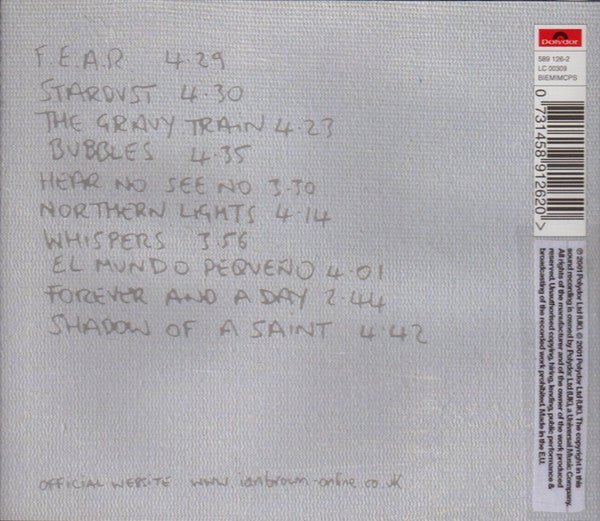 F.E.A.R. 4.29
STARDUST 4.30
THE GRAVY TRAIN 4.23
BUBBLES 4.35
HEAR NO SEE NO 3.30
NORTHERN LIGHTS 4.14
WHISPERS 3.56
EL MUNDO PEQUEÑO 4.01
FOREVER AND A DAY 2.44
SHADOW OF A SAINT 4.42
OFFICIAL WEBSITE www.ianbrown-online.co.uk
Polydor
589 126-2
LC 00309
BIEM/MCPS
0 731458 912620 >
℗ 2001 Polydor Ltd (UK). © 2001 Polydor Ltd (UK). The copyright in this
sound recording is owned by Polydor Ltd (UK), a Universal Music Company.
All rights of the manufacturer and of the owner of the work produced
reserved. Unauthorised copying, hiring, lending, public performance &
broadcasting of the recorded work prohibited. Made in the E.U.